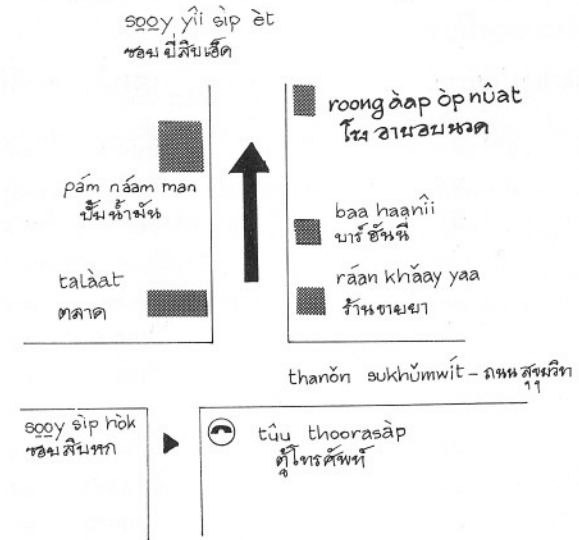 so̱o̱y yîi sìp èt
ซอย ยี่สิบเอ็ด
roong àap òp nûat
โรง อาบอบนวด
pám náam man
ปั๊มน้ำมัน
baa haanîi
บาร์ ฮันนี่
talàat
ตลาด
ráan khǎay yaa
ร้านขายยา
thanǒn sukhǔmwít – ถนน สุขุมวิท
so̱o̱y sìp hòk
ซอยสิบหก
tûu thoorasàp
ตู้โทรศัพท์